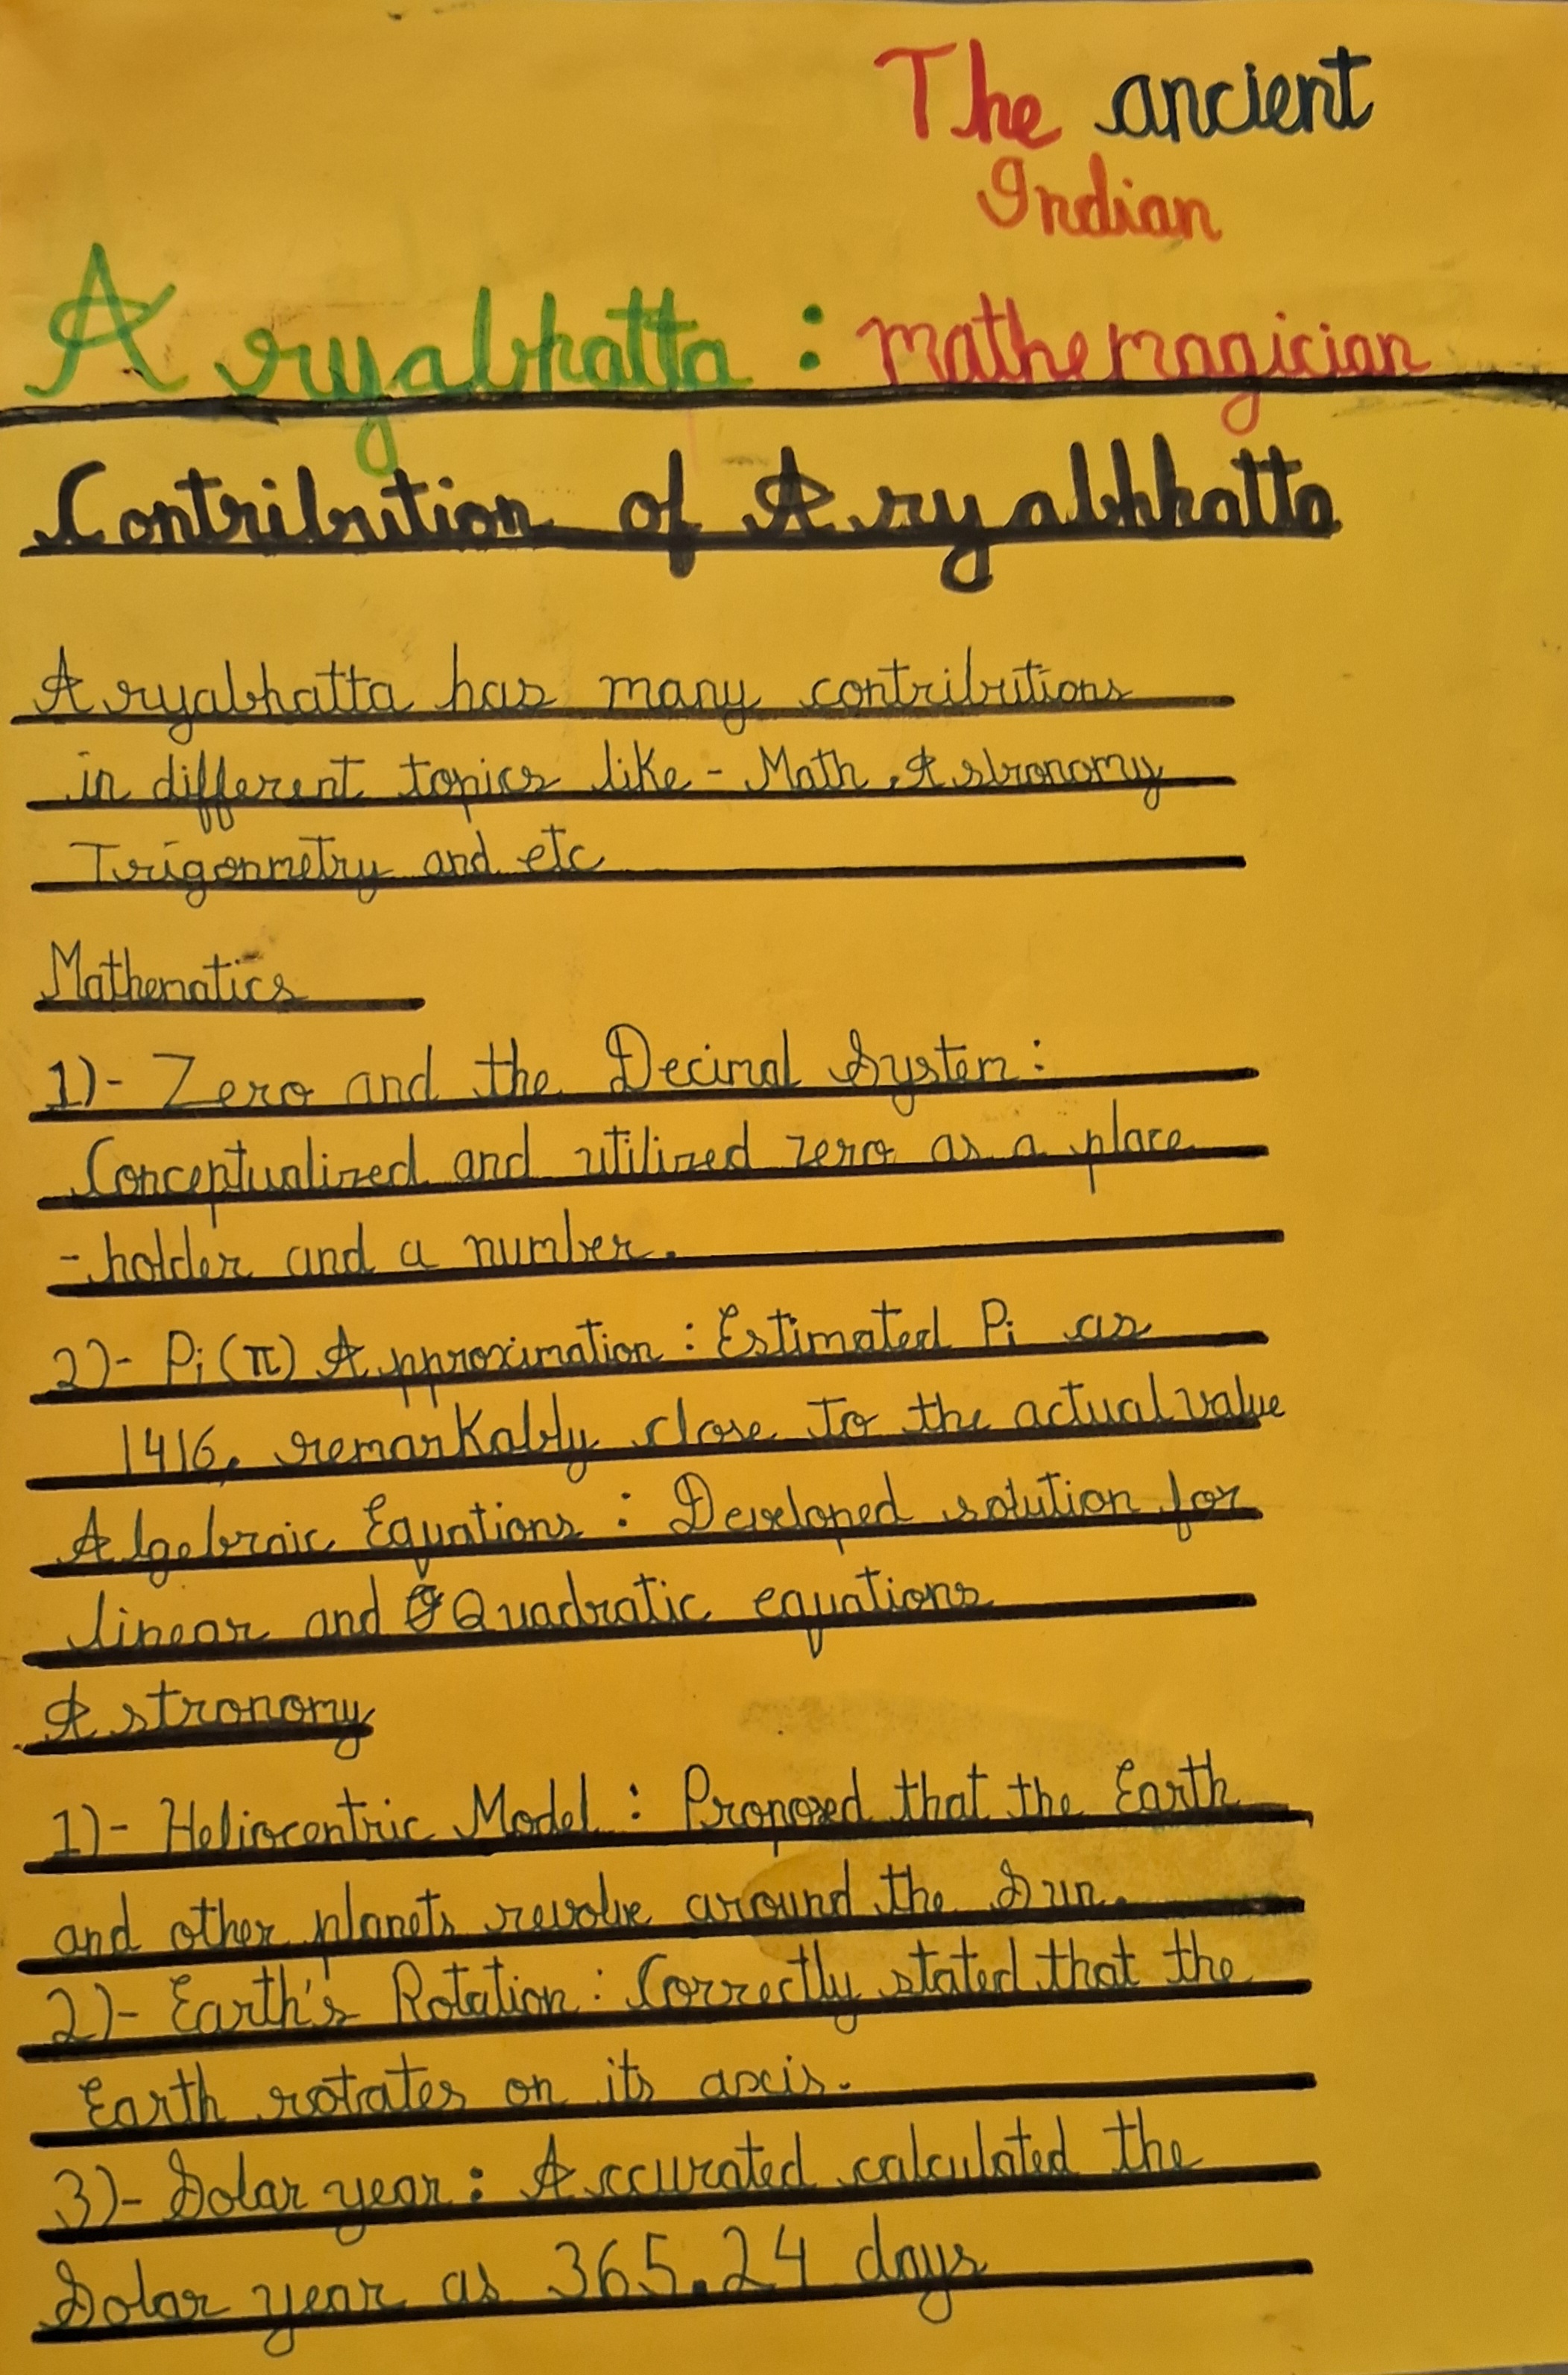 The ancient
Indian
Aryabhatta : mathemagician
Contribution of Aryabhhatta
Aryabhatta has many contributions
in different topics like - Math, Astronomy
Trigonmetry and etc
Mathematics
1)- Zero and the Decimal System :
Conceptualized and utilized zero as a place
- holder and a number.
2)- Pi (π) Approximation : Estimated Pi as
1416, remarkably close to the actual value
Algebraic Equations : Developed solution for
linear and Quadratic equations
Astronomy
1)- Heliocentric Model : Proposed that the Earth
and other planets revolve around the Sun.
2)- Earth's Rotation : Correctly stated that the
Earth rotates on its axis.
3)- Solar year : Accurated calculated the
Solar year as 365.24 days